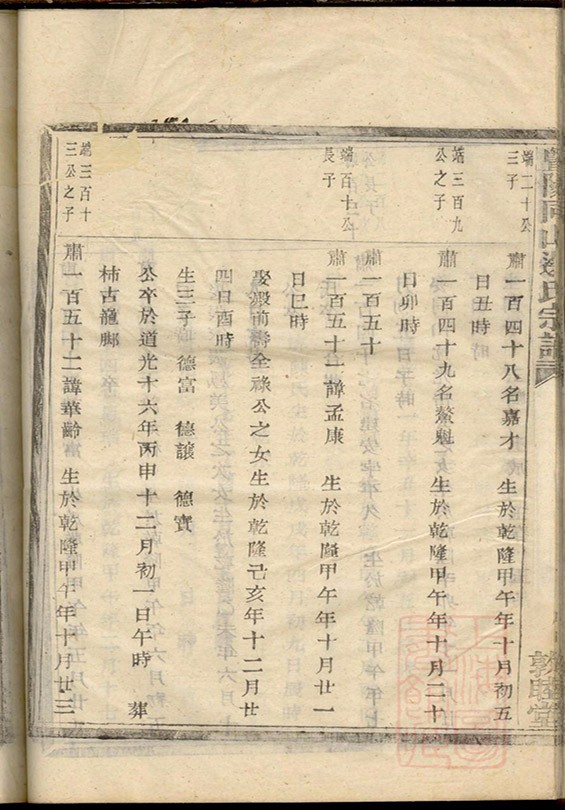 端二十公
三子
肅一百四十八名嘉才　生於乾隆甲午年十月初五
日丑時
端三百九
公之子
肅一百四十九名鰲魁　生於乾隆甲午年十月二十
日卯時
肅一百五十
端百十公
長子
肅一百五十一諱孟康　生於乾隆甲午年十月廿一
日巳時
娶殿前壽全祿公之女生於乾隆己亥年十二月廿
四日酉時
生三子　德富　德讓　德實
公卒於道光十六年丙申十二月初一日午時　葬
柿古龍脚
端三百十
三公之子
肅一百五十二諱華齡　生於乾隆甲午年十月廿三
宗譜
敦睦堂